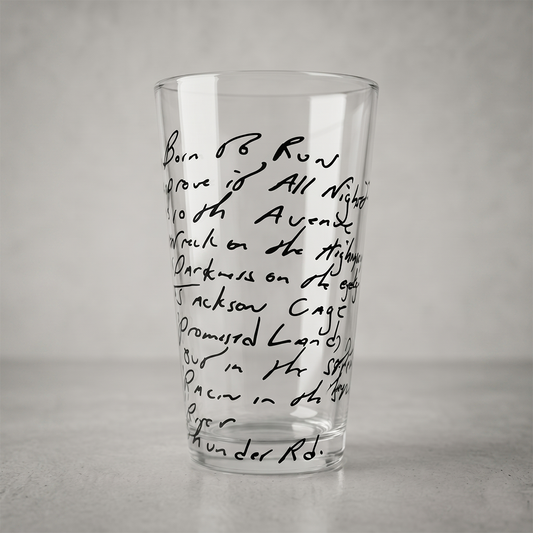 Born to Run
Prove it All Night
10th Avenue
Wreck on the Highway
Darkness on the edge
Jackson Cage
Promised Land
Out in the
Racin in the
River
Thunder Rd.